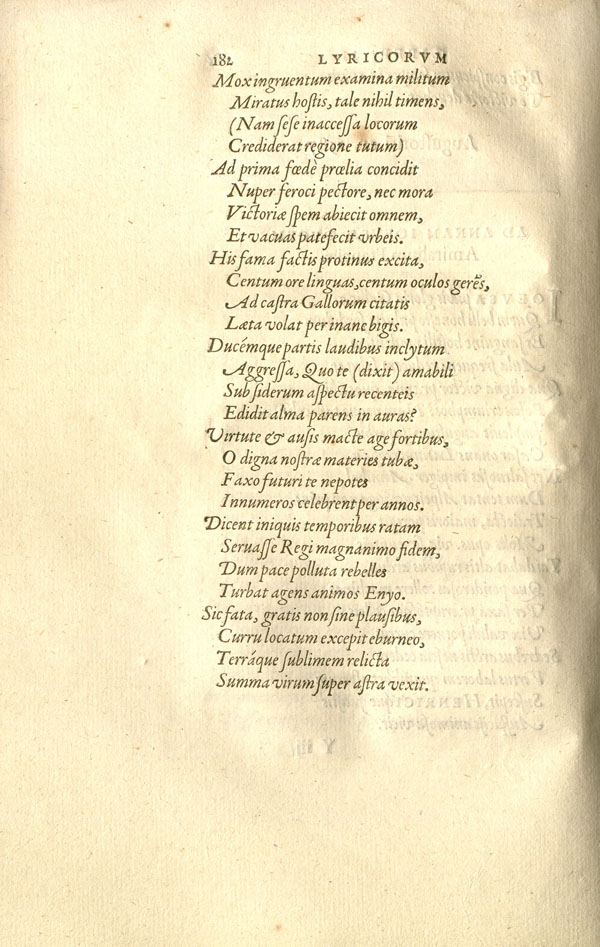 182 LYRICORVM
Mox ingruentum examina militum
Miratus hostis, tale nihil timens,
(Nam sese inaccessa locorum
Crediderat regione tutum)
Ad prima fœdè prœlia concidit
Nuper feroci pectore, nec mora
Victoriæ spem abiecit omnem,
Et vacuas patefecit vrbeis.
His fama factis protinus excita,
Centum ore linguas, centum oculos gerẽs,
Ad castra Gallorum citatis
Læta volat per inane bigis.
Ducémque partis laudibus inclytum
Aggressa, Quo te (dixit) amabili
Sub siderum aspectu recenteis
Edidit alma parens in auras?
Virtute & ausis macte age fortibus,
O digna nostræ materies tubæ,
Faxo futuri te nepotes
Innumeros celebrent per annos.
Dicent iniquis temporibus ratam
Seruasse Regi magnanimo fidem,
Dum pace polluta rebelles
Turbat agens animos Enyo.
Sic fata, gratis non sine plausibus,
Curru locatum excepit eburneo,
Terráque sublimem relicta
Summa virum super astra vexit.